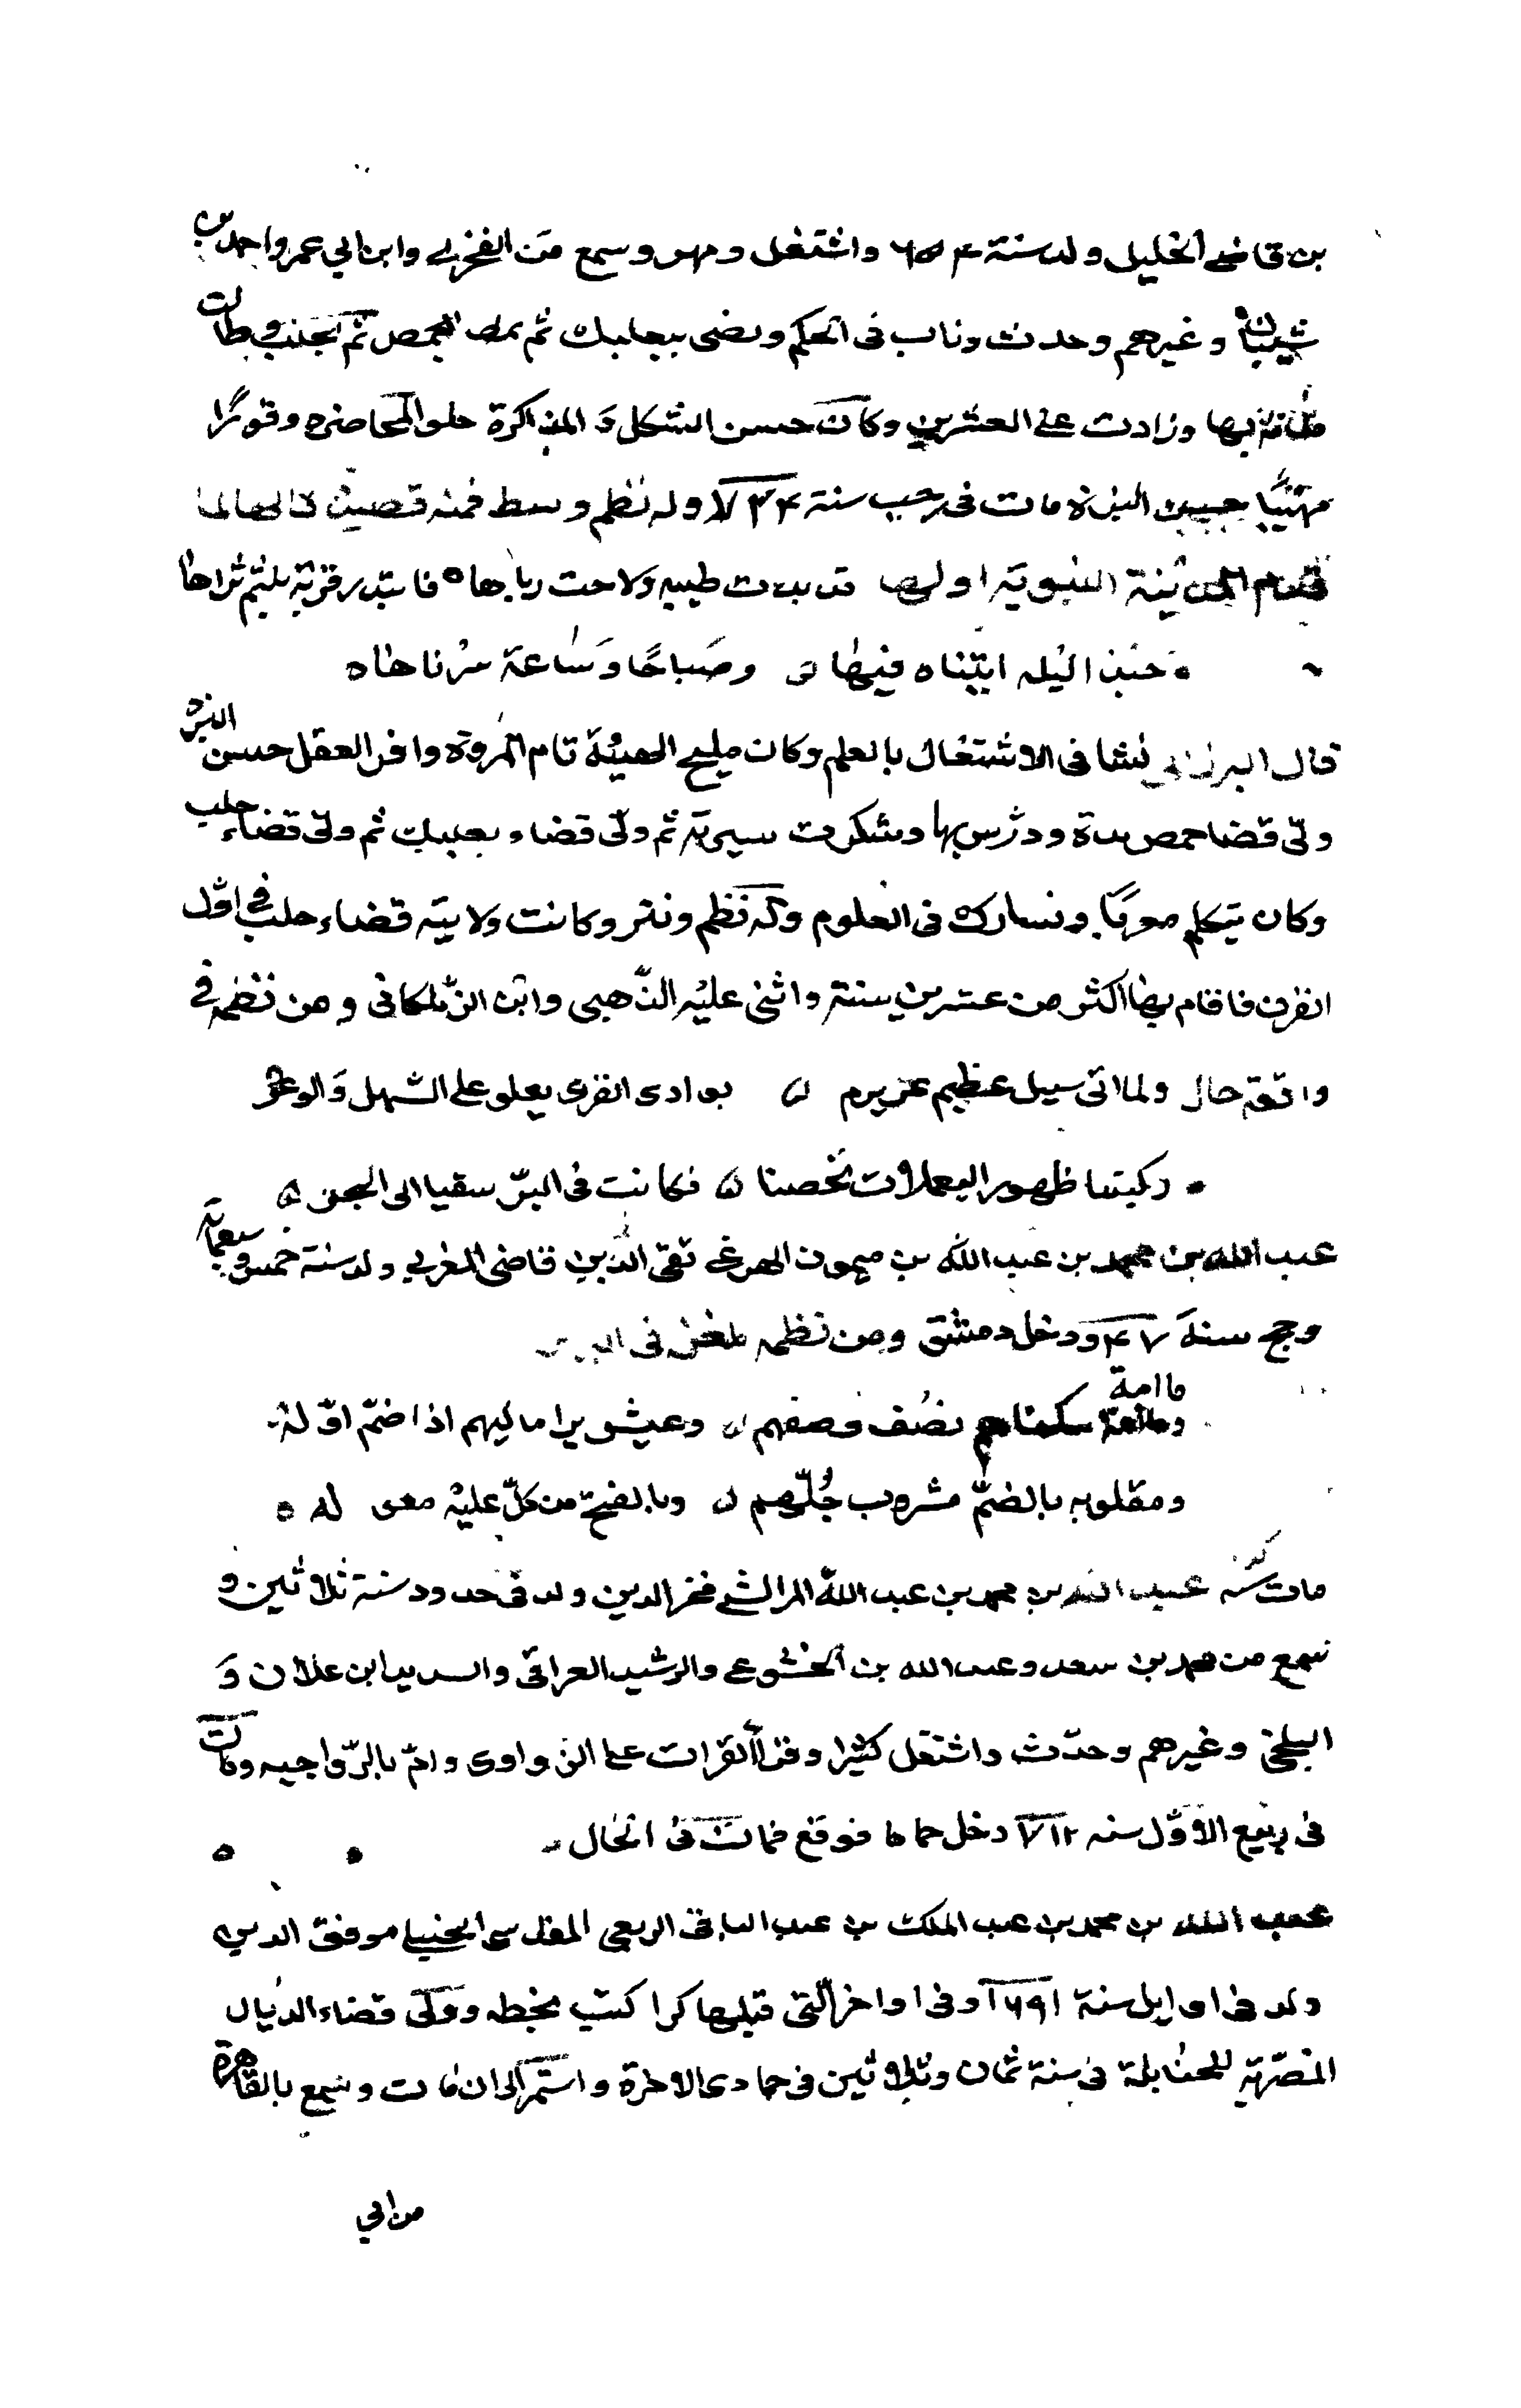 بن قاضي الخليل ولد سنة ٦٥٤ واشتغل ومهر وسمع من الفخر وابن ابي عمر واحمد بن
شيبان وغيرهم وحدث وناب فى الحكم وقضى ببعلبك ثم بحمص ثم بحلب وطالت
مدته بها وزادت على العشرين وكان حسن الشكل و المذاكرة حلو المحاضره وقورًا
مهيبًا حسن البزة مات فى رجب سنة ٧٢٤ وله نظم وسط فمنه قصيدة قالها لما
قدم المدينة النبوية اولها قد بدت طيبه ولاحت رباها ٥ فابتدر قربة بلثم ثراها
حبذا ليله ابتناه فيها ٥ وصَباحًا وَسَاعة سرنا ها ٥
قال البرزالى نشا فى الاشتغال بالعلم وكان مليح الهيئة تام المروة وافر العقل حسن البزة
ولى قضا حمص مدة ودرّس بها وشكرت سيرته ثم ولى قضاء بعلبك ثم ولى قضاء حلب
وكان يتكلم معربًا ونشارك فى العلوم وله نظم ونثر وكانت ولايته قضاء حلب في اوّل
القرن فاقام بها اكثر من عشرين سنة واثنى عليه الذّهبى وابن الزّملكانى ومن نظمه في
واقعة حال ولما اتى سيل عظيم عرمرم ٥ بوادى القرى يعلو على السّهل وَالوعر
ركبنا ظهور اليعملات تحصنا ٥ فكانت فى البرّ سقيا الى البحر ٥
عبد الله بن محمد بن عبد الله بن ميمون الهرغي تقى الدّين قاضى المغرب ولد سنة خمس وسبعمائة
وحج سنة ٤٧ ودخل دمشق ومن نظمه ملغز فى
ما امة سكناهم نصُف وصفهم ٥ وعيش يرا ماليهم اذا ضمّ اوّلهْ
ومقلوبه بالضمّ مشروب جُلّهم ٥ وبالفتح من كلّ عليه معى له ٥
مات سنة عبد الله بن محمد بن عبد الله المراكشي فخر الدين ولد فى حدود سنة ثلاثين و
سمع من محمد بن سعد وعبد الله بن الخشوعي والرشيد العراقى والسديد ابن علان وَ
البلخي وغيرهم وحدّث واشتغل كثيرا وقرا القرات على الزواوى وامّ بالرّواحيه وكانت
فى ربيع الاوّل سنه ٧١٢ دخل حماما فوقع فمات فى الحال
عبد الله بن محمد بن عبد الملك بن عبد الباقى الربعى المقدسى الحنبلي موفق الدين
ولد فى اوايل سنة ٦٩١ او فى اواخر التى قبلها كذا كتب بخطه وولى قضاء الديار
المصرية للحنابلة فى سنة ثمان وثلاثين فى جمادى الاخرة واستمر الى ان مات وسمع بالقاهرة
من ابي